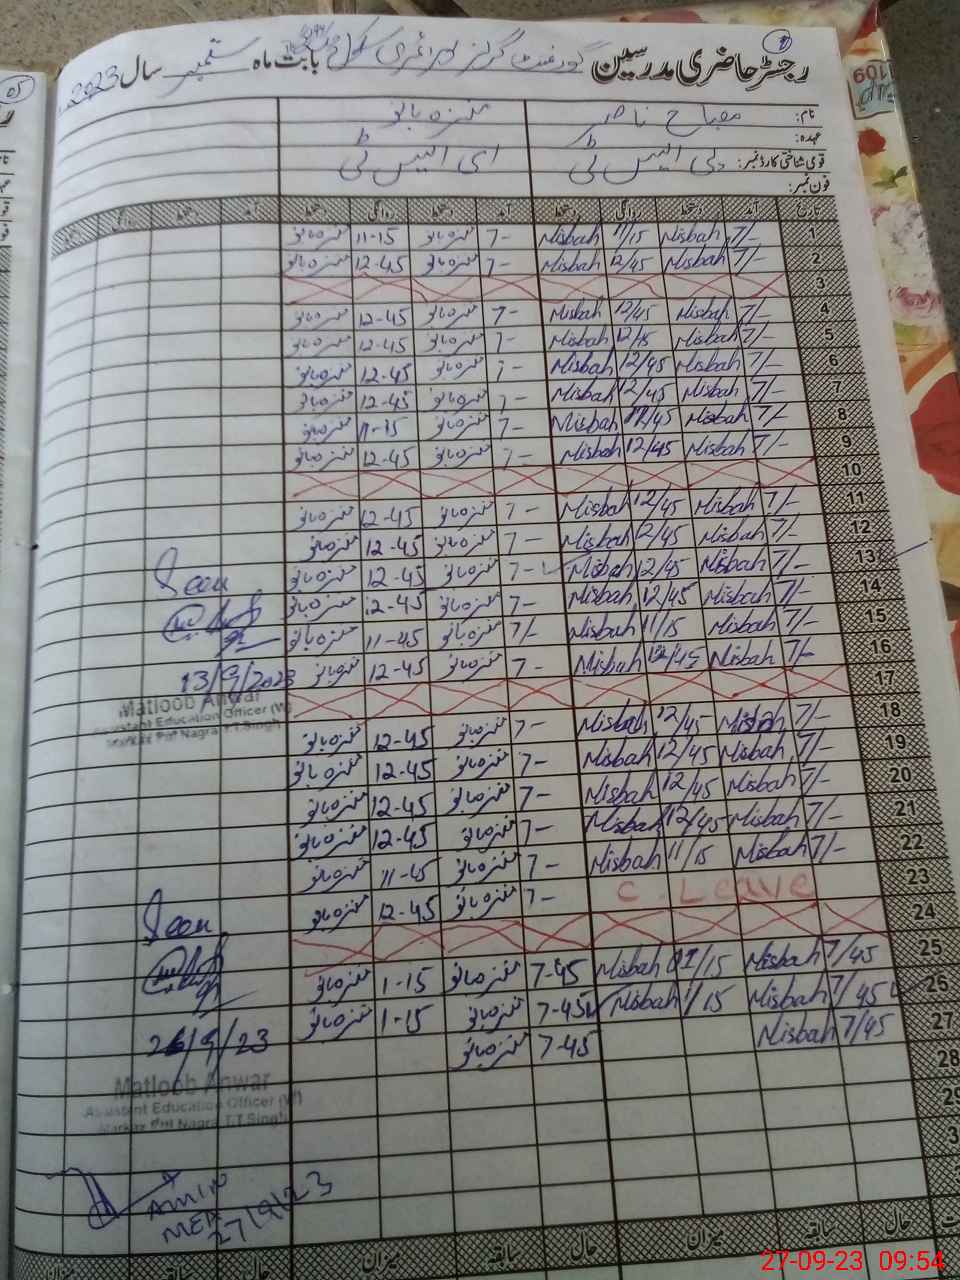 رجسٹر حاضری مدرسین گورنمنٹ گرلز پرائمری بابت ماہ ستمبر سال 2023
نام: مصباح ناصر منزہ بانو
عہدہ:
قومی شناختی کارڈ نمبر: پی ایس ٹی ای ایس ٹی
فون نمبر:
تاریخ آمد دستخط روانگی دستخط آمد دستخط روانگی دستخط آمد دستخط روانگی دستخط
1 7/- Misbah 11/15 Misbah 7- منزہ بانو 11-15 منزہ بانو
2 7/- Misbah 12/45 Misbah 7- منزہ بانو 12-45 منزہ بانو
3
4 7/- Misbah 12/45 Misbah 7- منزہ بانو 12-45 منزہ بانو
5 7/- Misbah 12/45 Misbah 7- منزہ بانو 12-45 منزہ بانو
6 7/- Misbah 12/45 Misbah 7- منزہ بانو 12-45 منزہ بانو
7 7/- Misbah 12/45 Misbah 7- منزہ بانو 12-45 منزہ بانو
8 7/- Misbah Misbah 7- منزہ بانو 11-15 منزہ بانو
9 7/- Misbah 12/45 Misbah 7- منزہ بانو 12-45 منزہ بانو
10
11 7/- Misbah 12/45 Misbah 7- منزہ بانو 12-45 منزہ بانو
12 7/- Misbah 12/45 Misbah 7- منزہ بانو 12-45 منزہ بانو
13 7/- Misbah 12/45 Misbah 7- منزہ بانو 12-45 منزہ بانو
14 7/- Misbah 12/45 Misbah 7- منزہ بانو 12-45 منزہ بانو
15 7/- Misbah 11/15 Misbah 7/- منزہ بانو 11-45 منزہ بانو
16 7/- Misbah 12/45 Misbah 7- منزہ بانو 12-45 منزہ بانو
17
18 7/- Misbah 12/45 Misbah 7- منزہ بانو 12-45 منزہ بانو
19 7/- Misbah 12/45 Misbah 7- منزہ بانو 12-45 منزہ بانو
20 7/- Misbah 12/45 Misbah 7- منزہ بانو 12-45 منزہ بانو
21 7/- Misbah 12/45 Misbah 7- منزہ بانو 12-45 منزہ بانو
22 7/- Misbah 11/15 Misbah 7- منزہ بانو 11-45 منزہ بانو
23 C. Leave 7- منزہ بانو 12-45 منزہ بانو
24
25 7/45 Misbah 1/15 Misbah 7-45 منزہ بانو 1-15 منزہ بانو
26 7/45 Misbah 1/15 Misbah 7-45 منزہ بانو 1-15 منزہ بانو
27 7/45 Misbah 7-45 منزہ بانو
28
29
Seen
13/9/2023
Matloob Anwar
Assistant Education Officer (W)
Markaz Pir Nagra T.T.Singh
Seen
26/9/23
Matloob Anwar
Assistant Education Officer (W)
Markaz Pir Nagra T.T.Singh
AMIN
MEA
27/9/23
حال سابقہ میزان حال سابقہ میزان حال سابقہ میزان
05
109
27-09-23 09:54